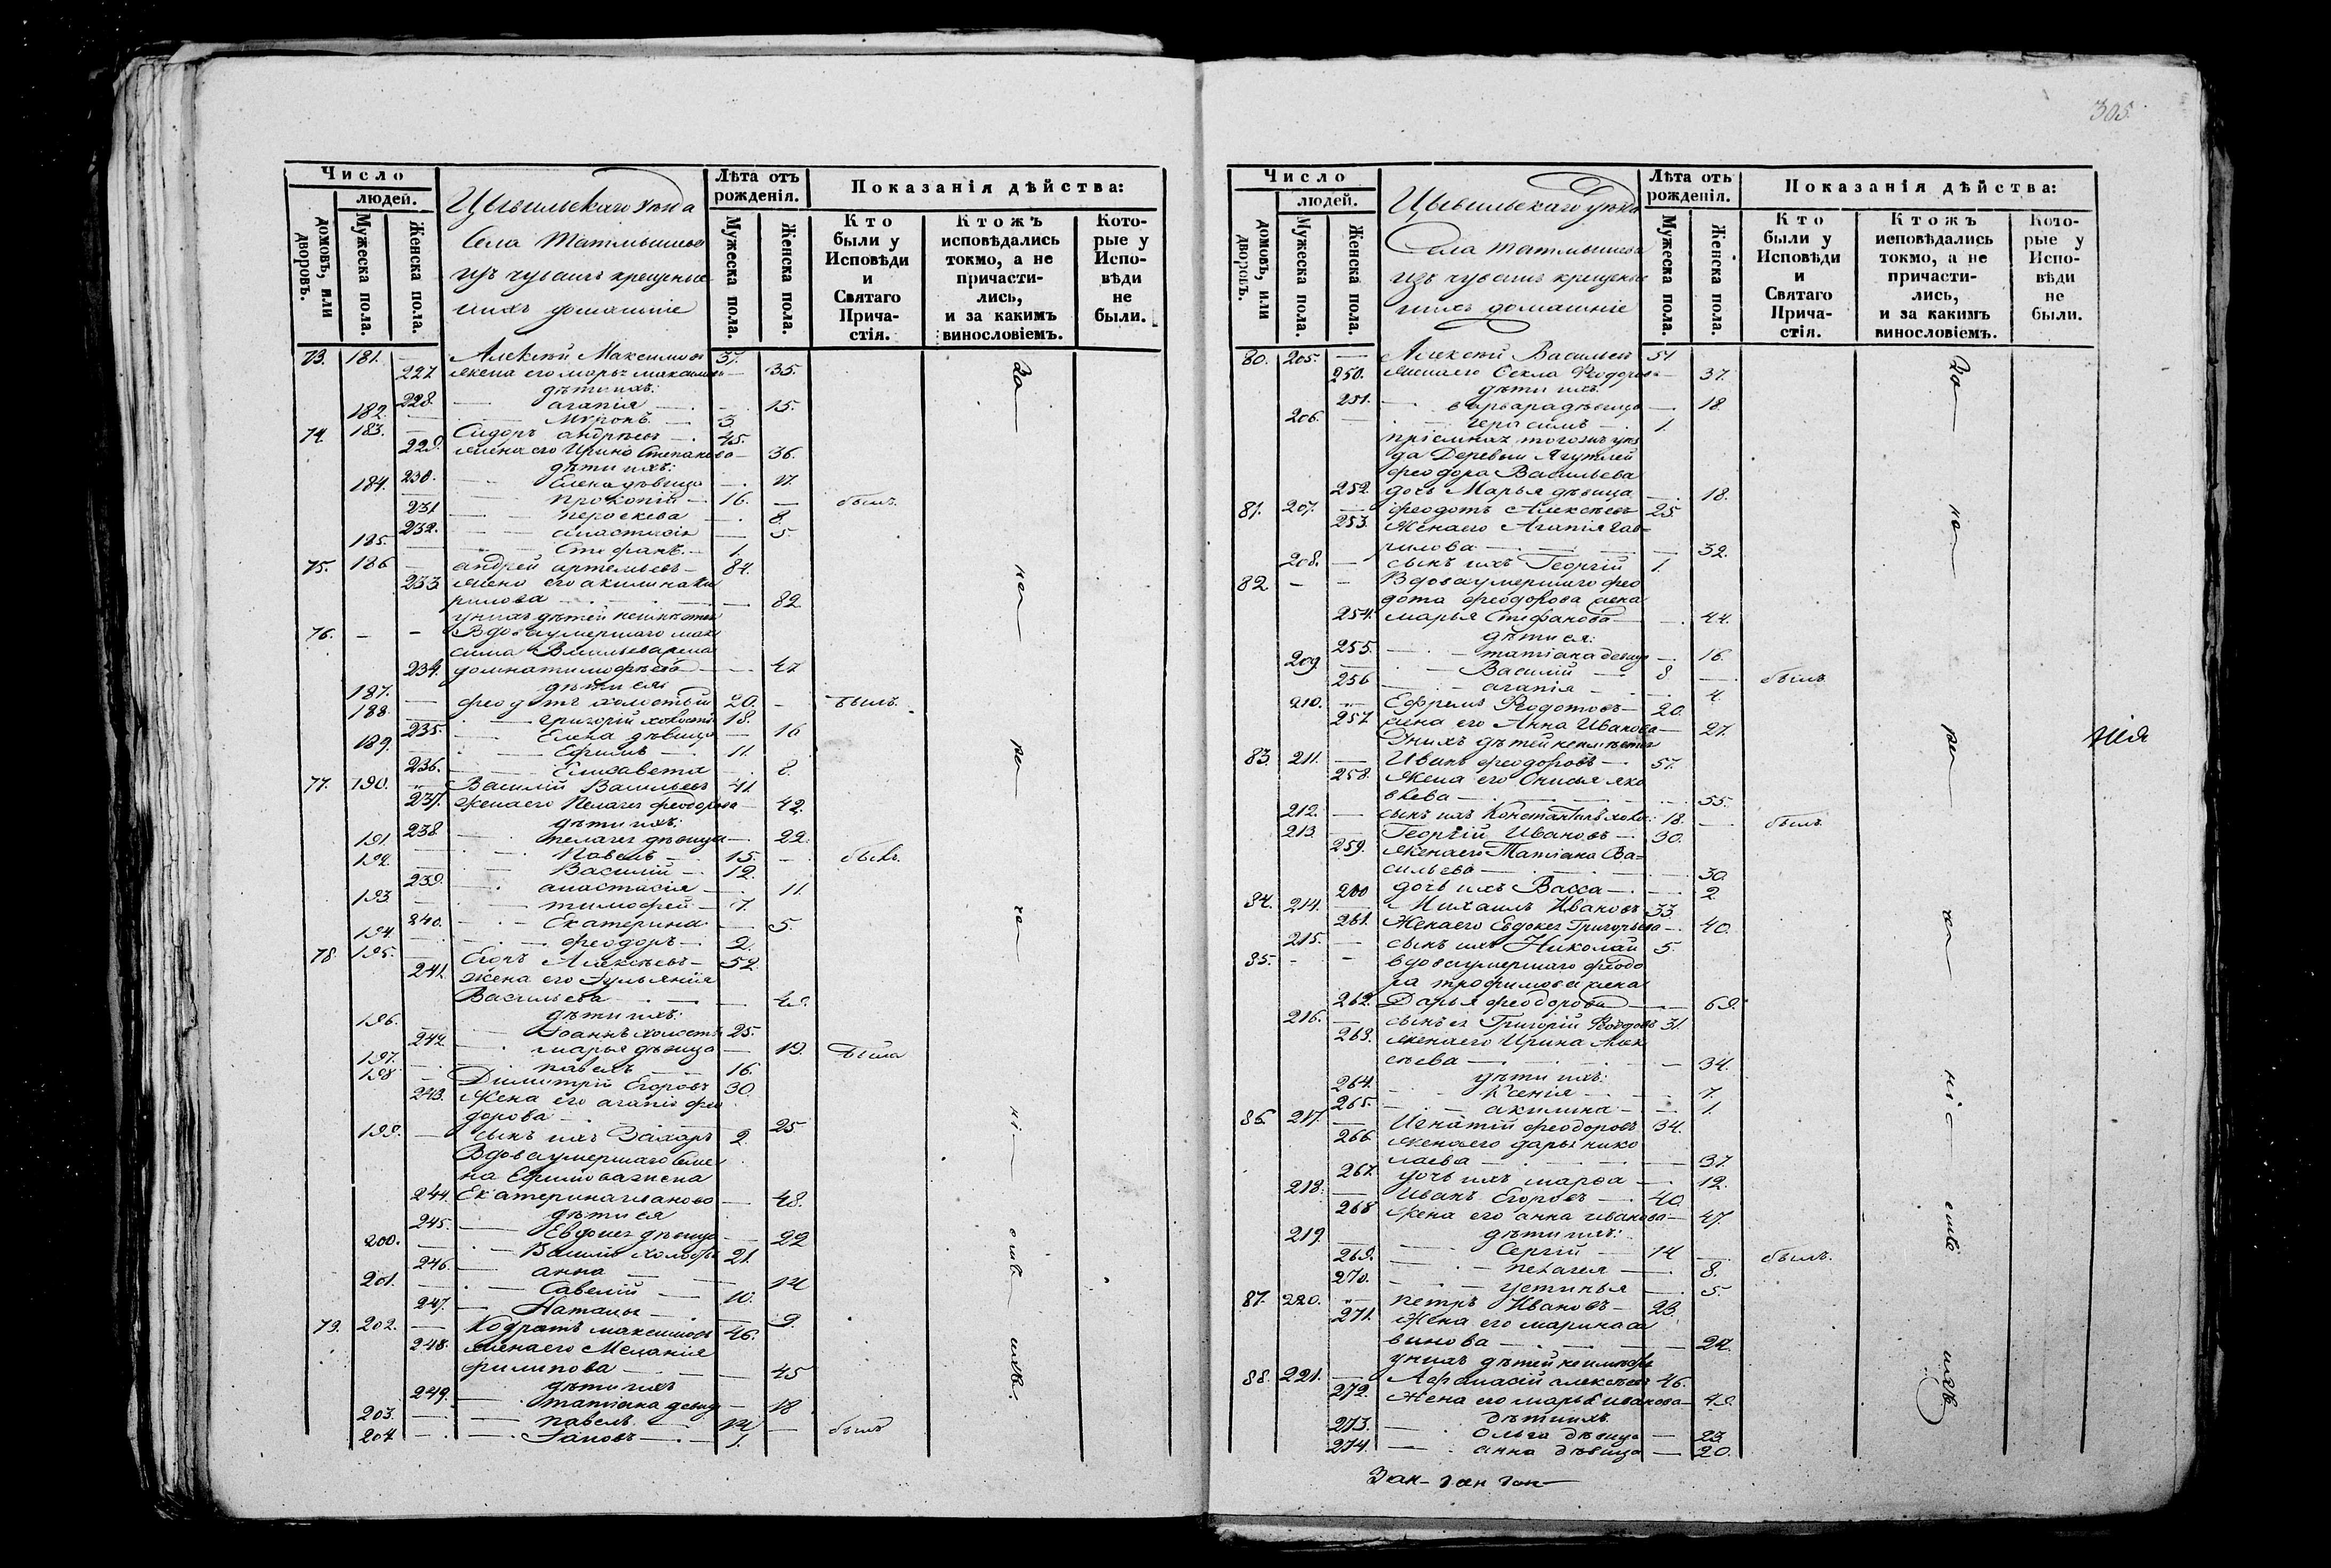 305.
Число
людей.
домовъ, или дворовъ.
Мужеска пола.
Женска пола.
Цывильскаго уѣзда
Села
изъ чувашъ крещеные
и ихъ домашніе
Лѣта отъ рожденія.
Мужеска пола.
Женска пола.
Показанія дѣйства:
Кто были у Исповѣди и Святаго Причастія.
Ктожъ исповѣдались токмо, а не причастились, и за какимъ винословіемъ.
Которые у Исповѣди не были.
73. 181. — Алексѣй Максимовъ 37.
227 жена его Марья Максимова — 35.
дѣти ихъ:
228. — агапія — 15.
182. — Миронъ — 3.
74. 183. — Сидоръ андреевъ — 45.
229. жена его Ирина Степанова — 36.
дѣти ихъ:
230. — Елена дѣвица — 17.
184. — прокопій — 16. — былъ
231 — пероскева — 8.
232. — анастасія — 5
185. — Стефанъ — 1.
75. 186 — андрей артемьевъ — 84.
233 жена его акилина
рилова — 82
у нихъ дѣтей неимѣется
76. — — Вдова умершаго мак
сима Васильева жена
234. домна тимофѣева — 47
дѣти ея
187. — холостый 20. — былъ
188. — григорій холостъ 18.
235. — Елена дѣвица — 16
189. — Ефимъ — 11
236. — Елисавета — 8.
77. 190. — Василій Васильевъ 41.
237. жена его Пелагея феодорова — 42.
дѣти ихъ:
238 — пелагея дѣвица — 22.
191. — Павелъ — 15. — былъ
192. — Василій — 12.
239. — анастасія — 11.
193. — тимофей — 7.
240. — Екатерина — 5.
194. — феодоръ — 2.
78. 195. — Егоръ Алексѣевъ — 52.
241. жена его Іульянія
Васильева — 49.
дѣти ихъ:
196. — Іоаннъ холостъ 25.
242. — марья дѣвица — 19. была
197. — павелъ — 16.
198 — Димитрій Егоровъ 30.
243. жена его агапія фео
дорова — 25
199. — сынъ ихъ Захаръ 2.
Вдова умершаго Семе
на Ефимова жена
244. Екатерина иванова — 48.
дѣти ея
245. — Евдокея дѣвица — 22
200. — Василій холостъ 21.
246. — анна — 14
201. — Савелій — 10.
247. — Наталья — 9.
79. 202. — Кодратъ максимовъ 46.
248. жена его Меланія
филипова — 45
дѣти ихъ
249. — татіана дѣвица — 18
203. — павелъ — 14 — былъ
204. — Іаковъ — 1.
за — ка — ра — ка — ні — отв — ихъ.
Число
людей.
домовъ, или дворовъ.
Мужеска пола.
Женска пола.
Цывильскаго уѣзда
Села
изъ чувашъ крещеные
и ихъ домашніе
Лѣта отъ рожденія.
Мужеска пола.
Женска пола.
Показанія дѣйства:
Кто были у Исповѣди и Святаго Причастія.
Ктожъ исповѣдались токмо, а не причастились, и за какимъ винословіемъ.
Которые у Исповѣди не были.
80. 205. — Алексѣй Васильевъ 51
250. жена его Ѳекла Ѳеодорова — 37.
дѣти ихъ
251. — варвара дѣвица — 18.
206. — герасимъ — 1.
того жъ уѣз
да Деревни
феодора Васильева
252 дочь Марья дѣвица — 18.
81. 207. — феодотъ Алексѣевъ 25.
253. жена его Агапія гав=
рилова — 32.
208. — сынъ ихъ Георгій 1.
82 — — Вдова умершаго фео
дота феодорова жена
254. марья Стефанова — 44.
дѣти ея:
255. — татіана дѣвица — 16.
209 — Василій — 8 — былъ
256 — агапія — 4.
210. — Ефремъ Ѳедотовъ — 20.
257 жена его Анна Иванова — 27.
У нихъ дѣтей неимѣется
83. 211. — Иванъ феодоровъ — 57.
258. жена его Онисья яко
влева — 55.
212. — сынъ ихъ Константинъ холо: 18. — былъ
213 — Георгій Ивановъ — 30.
259. жена его Татіана Ва=
сильева — 30
260 дочь ихъ Васса — 2
84. 214. — Михаилъ Ивановъ 33.
261. Жена его Евдокея Григорьева — 40.
215. — сынъ ихъ Николай 5.
85. — — вдова умершаго феодо
ра трофимова жена
262. Дарья феодорова — 69.
216. — сынъ ея Григорій 31.
263. жена его Ирина Алек
сѣева — 34.
дѣти ихъ:
264. — Ксенія — 7.
265. — акилина — 1.
86. 217. — Игнатій феодоровъ 34.
266 жена его дарья нико
лаева — 37.
267. дочь ихъ марѳа — 12.
218. — Иванъ Егоровъ — 40
268 жена его анна иванова — 47.
дѣти ихъ:
219. — Сергій — 14 — былъ.
269. — пелагея — 8.
270. — устинья — 5.
87. 220. — петръ Ивановъ — 23.
271. жена его марина са
винова — 24.
у нихъ дѣтей неимѣется
88. 221. — Афонасій алексѣевъ 46.
272. жена его марья иванова — 49.
дѣти ихъ
273. — Ольга дѣвица — 23.
274. — анна дѣвица — 20.
за — ка — ра — ка — ніе — отв — ихъ